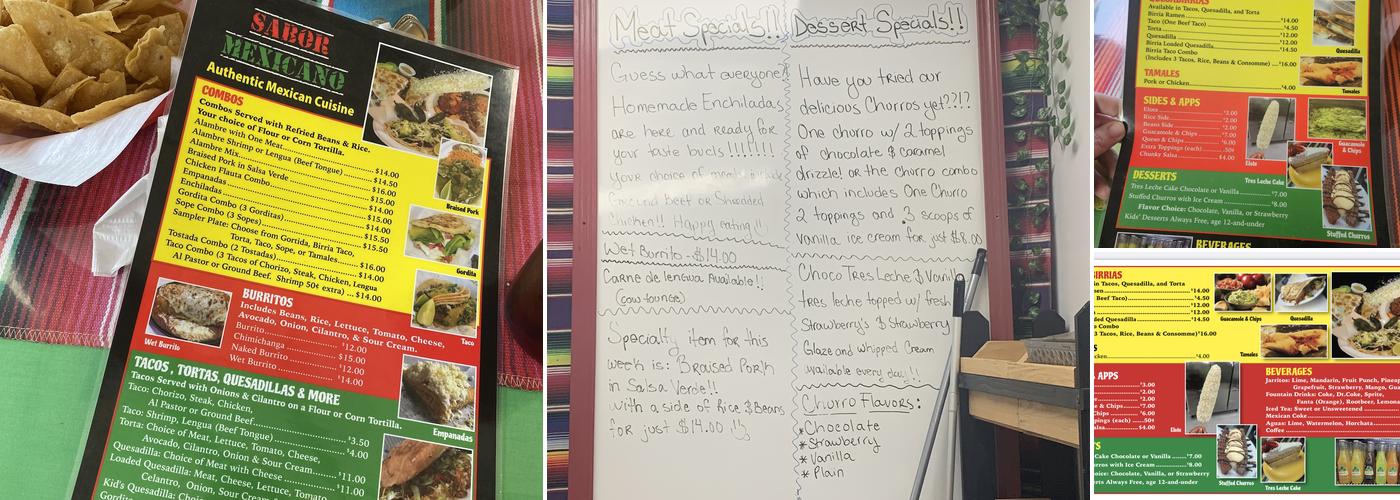 SABOR
MEXICANO
Authentic Mexican Cuisine
COMBOS
Combos Served with Refried Beans & Rice.
Your choice of Flour or Corn Tortilla.
Alambre with One Meat $14.00
Alambre Shrimp or Lengua (Beef Tongue) $14.50
Alambre Mix $16.00
Braised Pork in Salsa Verde $15.00
Chicken Flauta Combo $14.00
Empanadas $14.00
Enchiladas $15.00
Gordita Combo (3 Gorditas) $15.50
Sope Combo (3 Sopes) $15.50
Sampler Plate: Choose from Gortida, Birria Taco,
Torta, Taco, Sope, or Tamales $16.00
Tostada Combo (2 Tostadas) $14.00
Taco Combo (3 Tacos of Chorizo, Steak, Chicken, Lengua
Al Pastor or Ground Beef. Shrimp 50¢ extra) ... $14.00
Braised Pork
Gordita
Taco
BURRITOS
Includes Beans, Rice, Lettuce, Tomato, Cheese,
Avocado, Onion, Cilantro, & Sour Cream.
Burrito $12.00
Chimichanga $15.00
Naked Burrito $12.00
Wet Burrito $14.00
Wet Burrito
Empanadas
TACOS, TORTAS, QUESADILLAS & MORE
Tacos Served with Onions & Cilantro on a Flour or Corn Tortilla.
Taco: Chorizo, Steak, Chicken,
Al Pastor or Ground Beef $3.50
Taco: Shrimp, Lengua (Beef Tongue)
Torta: Choice of Meat, Lettuce, Tomato, Cheese,
Avocado, Onion & Sour Cream $11.00
Quesadilla: Choice of Meat with Cheese $11.00
Loaded Quesadilla: Meat, Cheese, Lettuce, Tomato,
Celantro, Onion, Sour Cream
Kid's Quesadilla:
Meat Specials!!
Guess what everyone?
Homemade Enchiladas
are here and ready for
your taste buds !!!!!!!
your choice of meats include
Ground Beef or Shredded
Chicken!! Happy eating!!
Wet Burrito - $14.00
Carne de lengua Available!!
(cow tounge)
Specialty item for this
week is: Braised Pork
in Salsa Verde!!
with a side of Rice & Beans
for just $14.00 !!
Dessert Specials!!
Have you tried our
delicious Churros yet??!?
One churro w/ 2 toppings
of chocolate & caramel
drizzle! or the churro combo
which includes One Churro
2 toppings and 3 scoops of
vanilla ice cream for just $8.00
Choco Tres Leche & Vanilla
tres leche topped w/ fresh
Strawberry's & Strawberry
Glaze and whipped Cream
available every day!!
Churro Flavors:
*Chocolate
*Strawberry
*Vanilla
*Plain
Available in Tacos, Quesadilla, and Torta
Birria Ramen $14.00
Taco (One Beef Taco) $4.50
Torta $12.00
Quesadilla $12.00
Birria Loaded Quesadilla $14.50
Birria Taco Combo
(Includes 3 Tacos, Rice, Beans & Consomme) $16.00
Quesadilla
TAMALES
Pork or Chicken $4.00
Tamales
SIDES & APPS
Elote $3.00
Rice Side $2.00
Beans Side $2.00
Guacamole & Chips $7.00
Queso & Chips $6.00
Extra Toppings (each) .50¢
Chunky Salsa $4.00
Elote
Guacamole
& Chips
Tres Leche Cake
DESSERTS
Tres Leche Cake Chocolate or Vanilla $7.00
Stuffed Churros with Ice Cream $8.00
Flavor Choice: Chocolate, Vanilla, or Strawberry
Kids' Desserts Always Free, age 12-and-under
Stuffed Churros
BEVERAGES
BIRRIAS
in Tacos, Quesadilla, and Torta
$14.00
Beef Taco) $4.50
$12.00
$12.00
ded Quesadilla $14.50
Combo
3 Tacos, Rice, Beans & Consomme) $16.00
Guacamole & Chips
Quesadilla
Tamales
$4.00
APPS
$3.00
$2.00
$2.00
& Chips $7.00
Chips $6.00
pings (each) .50¢
alsa $4.00
Elote
BEVERAGES
Jarritos: Lime, Mandarin, Fruit Punch, Pineap
Grapefruit, Strawberry, Mango, Gua
Fountain Drinks: Coke, Dr.Coke, Sprite,
Fanta (Orange), Rootbeer, Lemona
Iced Tea: Sweet or Unsweetened
Mexican Coke
Aguas: Lime, Watermelon, Horchata
Coffee
Cake Chocolate or Vanilla $7.00
urros with Ice Cream $8.00
oice: Chocolate, Vanilla, or Strawberry
erts Always Free, age 12-and-under
Stuffed Churros
Tres Leche Cake